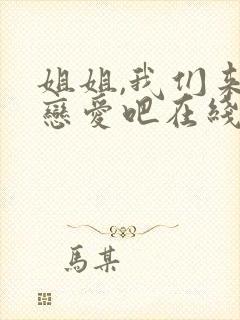 姐姐,我们来
戀愛吧在綫
馬某